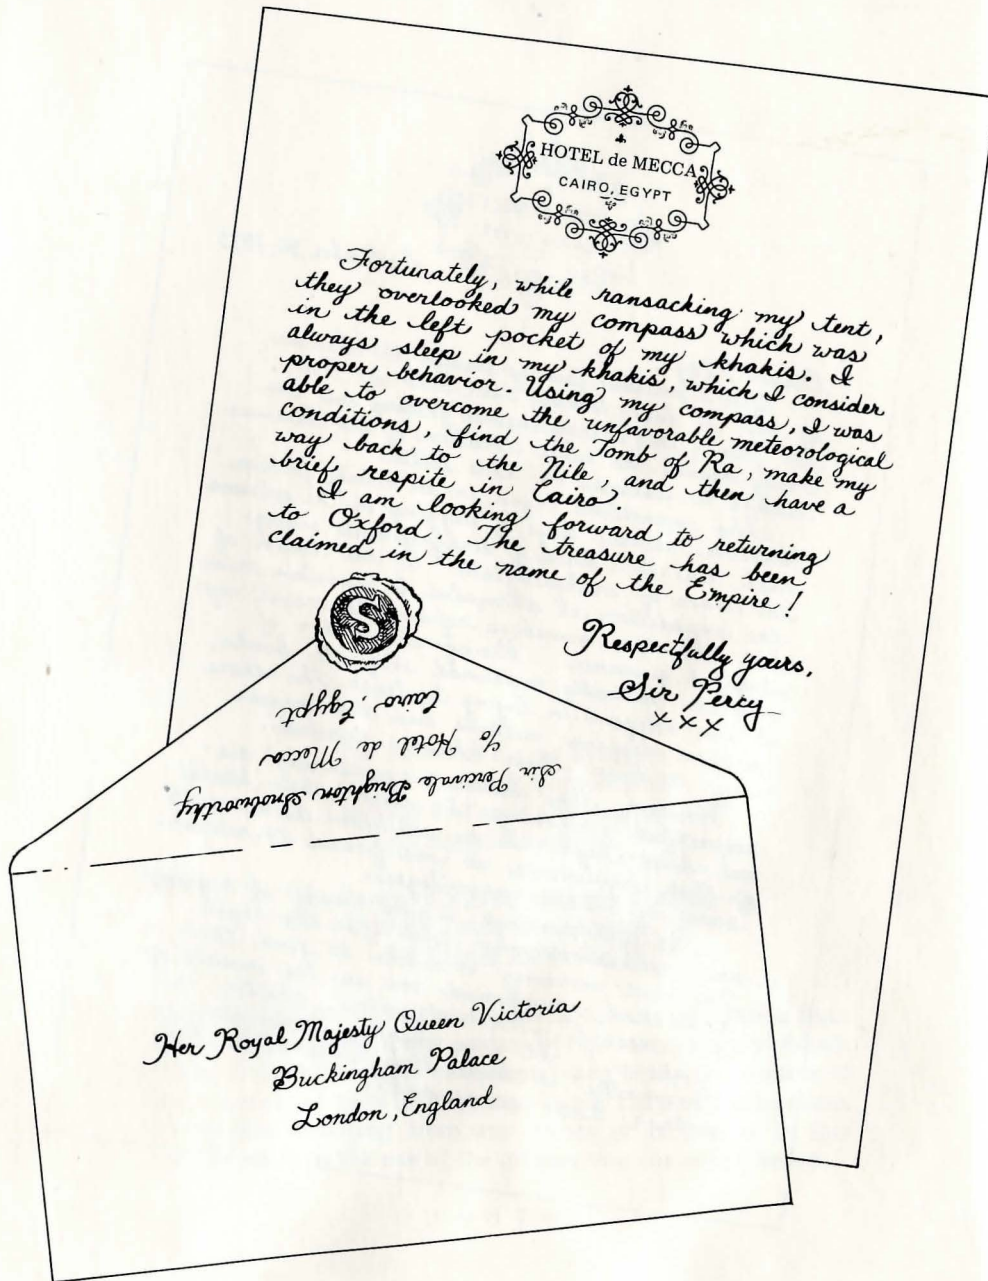 HOTEL de MECCA
CAIRO, EGYPT
Fortunately, while ransacking my tent,
they overlooked my compass which was
in the left pocket of my khakis. I
always sleep in my khakis, which I consider
proper behavior. Using my compass, I was
able to overcome the unfavorable meteorological
conditions, find the Tomb of Ra, make my
way back to the Nile, and then have a
brief respite in Cairo.
I am looking forward to returning
to Oxford. The treasure has been
claimed in the name of the Empire!
Respectfully yours,
Sir Percy
xxx
S
Sir Percivale Brighton Snobworthy
c/o Hotel de Mecca
Cairo, Egypt
Her Royal Majesty Queen Victoria
Buckingham Palace
London, England